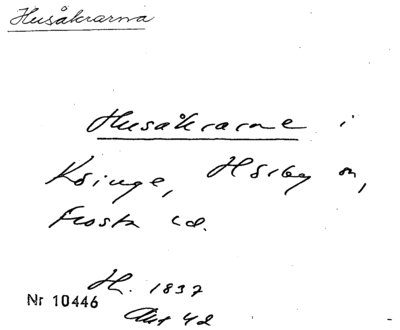 Husåkrarna
Husåkrarne i
Ksinge, Hörby sn,
Frosta hd.
H. 1837
Nr 10446
Akt 42